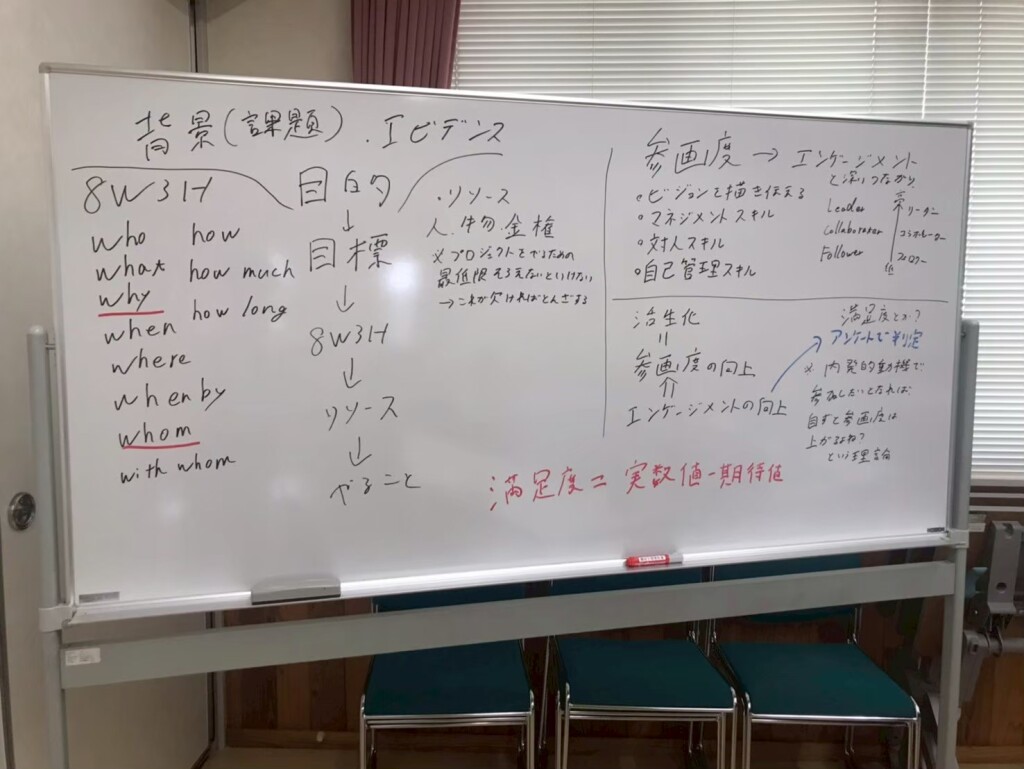 背景(課題).エビデンス
8W3H
who how
what how much
why how long
when
where
when by
whom
with whom
目的
↓
目標
↓
8W3H
↓
リソース
↓
やること
・リソース
人.物.金.権
※プロジェクトをやるための
最低限そろえないといけない
→これが欠ければとんざする
参画度→エンゲージメント
と深いつながり
・ビジョンを描き伝える
・マネジメントスキル
・対人スキル
・自己管理スキル
Leader リーダー
Collaborater コラボレーター
Follower フォロワー
低
活性化
参画度の向上
エンゲージメントの向上
満足度とか?
アンケートで判定
※内発的動機で
参加したいとなれば
自ずと参画度は
上がるよね?
という理論
満足度=実数値-期待値